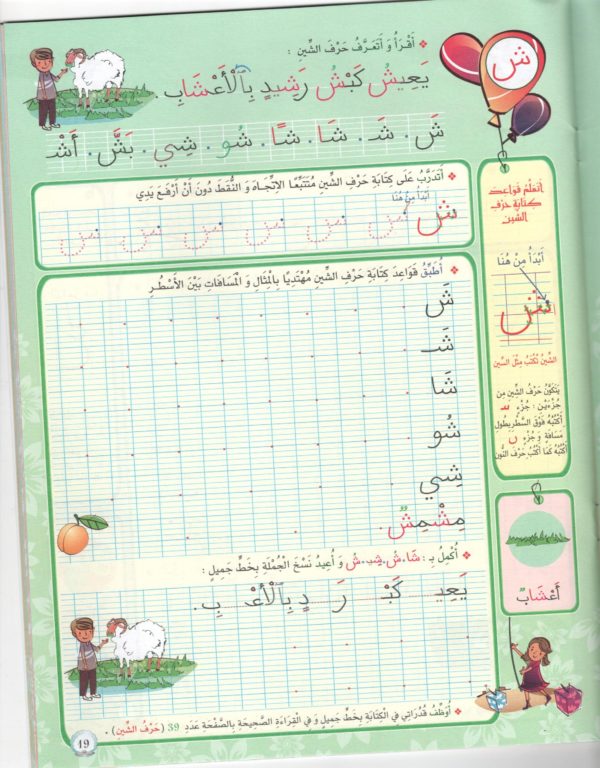 ❖ أَقْرَأُ وَ أَتَعَرَّفُ حَرْفَ الشِّينِ :
يَعِيشُ كَبْشُ رَشِيدٍ بِالْأَعْشَابِ.
شَ . شَـ . شَا . شًا . شُو . شِي . بَشَّ . أَشْـ
ش
❖ أَتَدَرَّبُ عَلَى كِتَابَةِ حَرْفِ الشِّينِ مُتَتَبِّعًا الِاتِّجَاهَ وَ النُّقَطَ دُونَ أَنْ أَرْفَعَ يَدِي
أَبْدَأُ مِنْ هُنَا
ش ش ش ش ش ش ش
❖ أُطَبِّقُ قَوَاعِدَ كِتَابَةِ حَرْفِ الشِّينِ مُهْتَدِيًا بِالْمِثَالِ وَ الْمَسَافَاتِ بَيْنَ الْأَسْطُرِ
شَ
شَـ
شَا
شُو
شِي
مِشْمِشٌ
❖ أُكْمِلُ بِـ : شَا . شُ . شِيـ . شُ وَ أُعِيدُ نَسْخَ الْجُمْلَةِ بِخَطٍّ جَمِيلٍ :
يَعِيـ كَبْـ رَ دٍ بِالْأَعْـ بِ.
❖ أُوَظِّفُ قُدُرَاتِي فِي الْكِتَابَةِ بِخَطٍّ جَمِيلٍ وَ فِي الْقِرَاءَةِ الصَّحِيحَةِ بِالصَّفْحَةِ عَدَدِ 39 (حَرْفُ الشِّينِ) .
أتعلم قواعد
كتابة حرف
الشين
أَبْدَأُ مِنْ هُنَا
ش
الشِّينُ تُكْتَبُ مِثْلَ السِّينِ
يَتَكَوَّنُ حَرْفُ الشِّينِ مِن
جُزْءَيْنِ : جُزْءٍ سـ
أَكْتُبُهُ فَوْقَ السَّطْرِ بِطُولِ
مَسَافَةٍ وَ جُزْءٍ ں
أَكْتُبُهُ كَمَا أَكْتُبُ حَرْفَ النُّونِ
أَعْشَابٌ
49